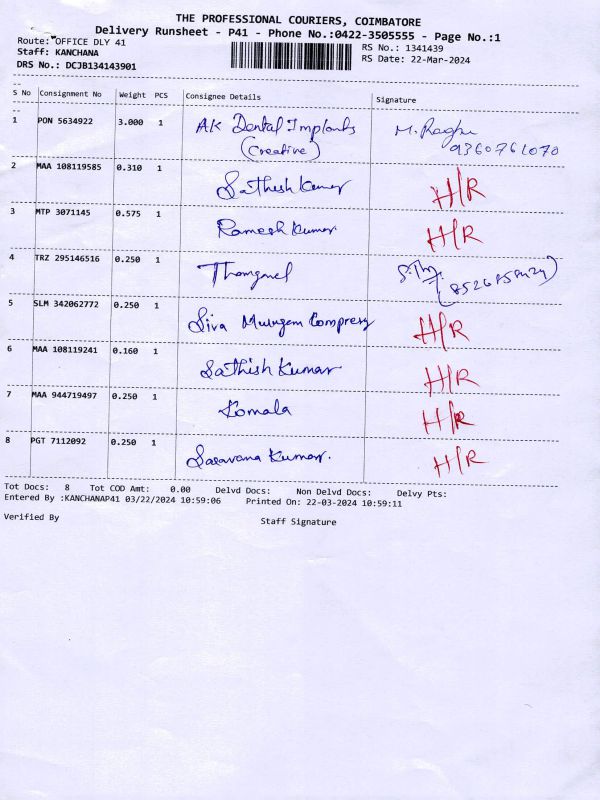 THE PROFESSIONAL COURIERS, COIMBATORE
Delivery Runsheet - P41 - Phone No.:0422-3505555 - Page No.:1
Route: OFFICE DLY 41
RS No.: 1341439
Staff: KANCHANA
RS Date: 22-Mar-2024
DRS No.: DCJB134143901
S No Consignment No Weight PCS Consignee Details Signature
1 PON 5634922 3.000 1 AK Dental Implants M. Raghu
(Creative) 9360761070
2 MAA 108119585 0.310 1 Sathish Kumar H/R
3 MTP 3071145 0.575 1 Ramesh Kumar. H/R
4 TRZ 295146516 0.250 1
5 SLM 342062772 0.250 1 Siva H/R
6 MAA 108119241 0.160 1 Sathish Kumar H/R
7 MAA 944719497 0.250 1 Komala H/R
8 PGT 7112092 0.250 1 Saravana Kumar. H/R
Tot Docs: 8 Tot COD Amt: 0.00 Delvd Docs: Non Delvd Docs: Delvy Pts:
Entered By :KANCHANAP41 03/22/2024 10:59:06 Printed On: 22-03-2024 10:59:11
Verified By Staff Signature